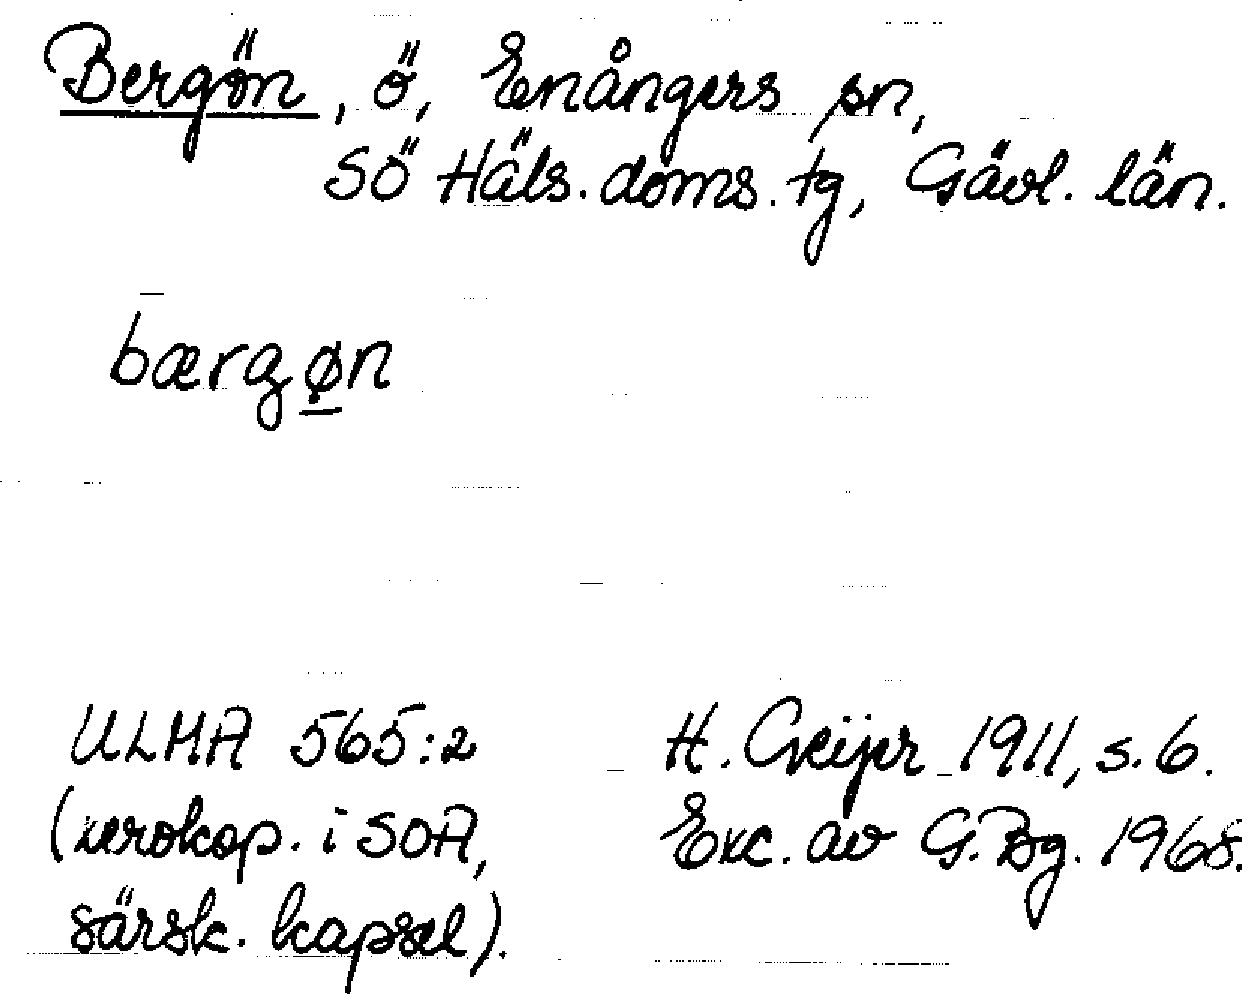 Bergön, ö, Enångers sn,
SÖ Häls. doms. tg, Gävl. län.
bærgø̱n
ULMA 565:2
(xerokop. i SOA,
särsk. kapsel).
H. Geijer 1911, s. 6.
Exc. av G. Bg. 1968.